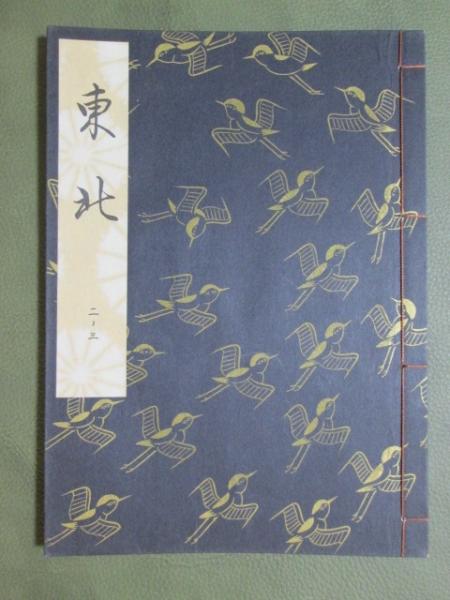 東北
二ノ三